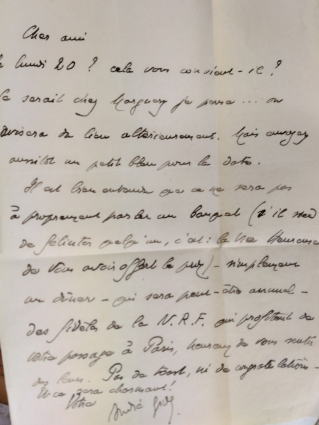 Cher ami
le lundi 20 ? cela vous convient-il ?
Ce serait chez Marguery je pense ... on
avisera du lieu ultérieurement. Mais envoyez
aussitôt un petit bleu pour la date.
Il est bien entendu que ce ne sera pas
à proprement parler un banquet (s'il
de féliciter quelqu'un, c'est : le
de vous avoir offert le prix) - simplement
un dîner - qui sera peut-être annuel -
des fidèles de la N.R.F. qui profitent de
votre passage à Paris, heureux de vous
Pas de toast, ni de congratulations -
Et ce sera charmant !
Votre
André Gide